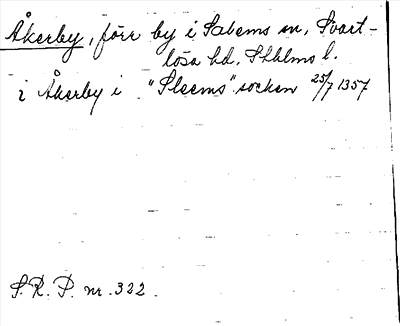 Åkerby, förr by i Salems sn, Svart-
lösa hd, Sthlms l.
i Åkerby i "Sleems" socken 25/7 1357
S. R. P. nr. 322.